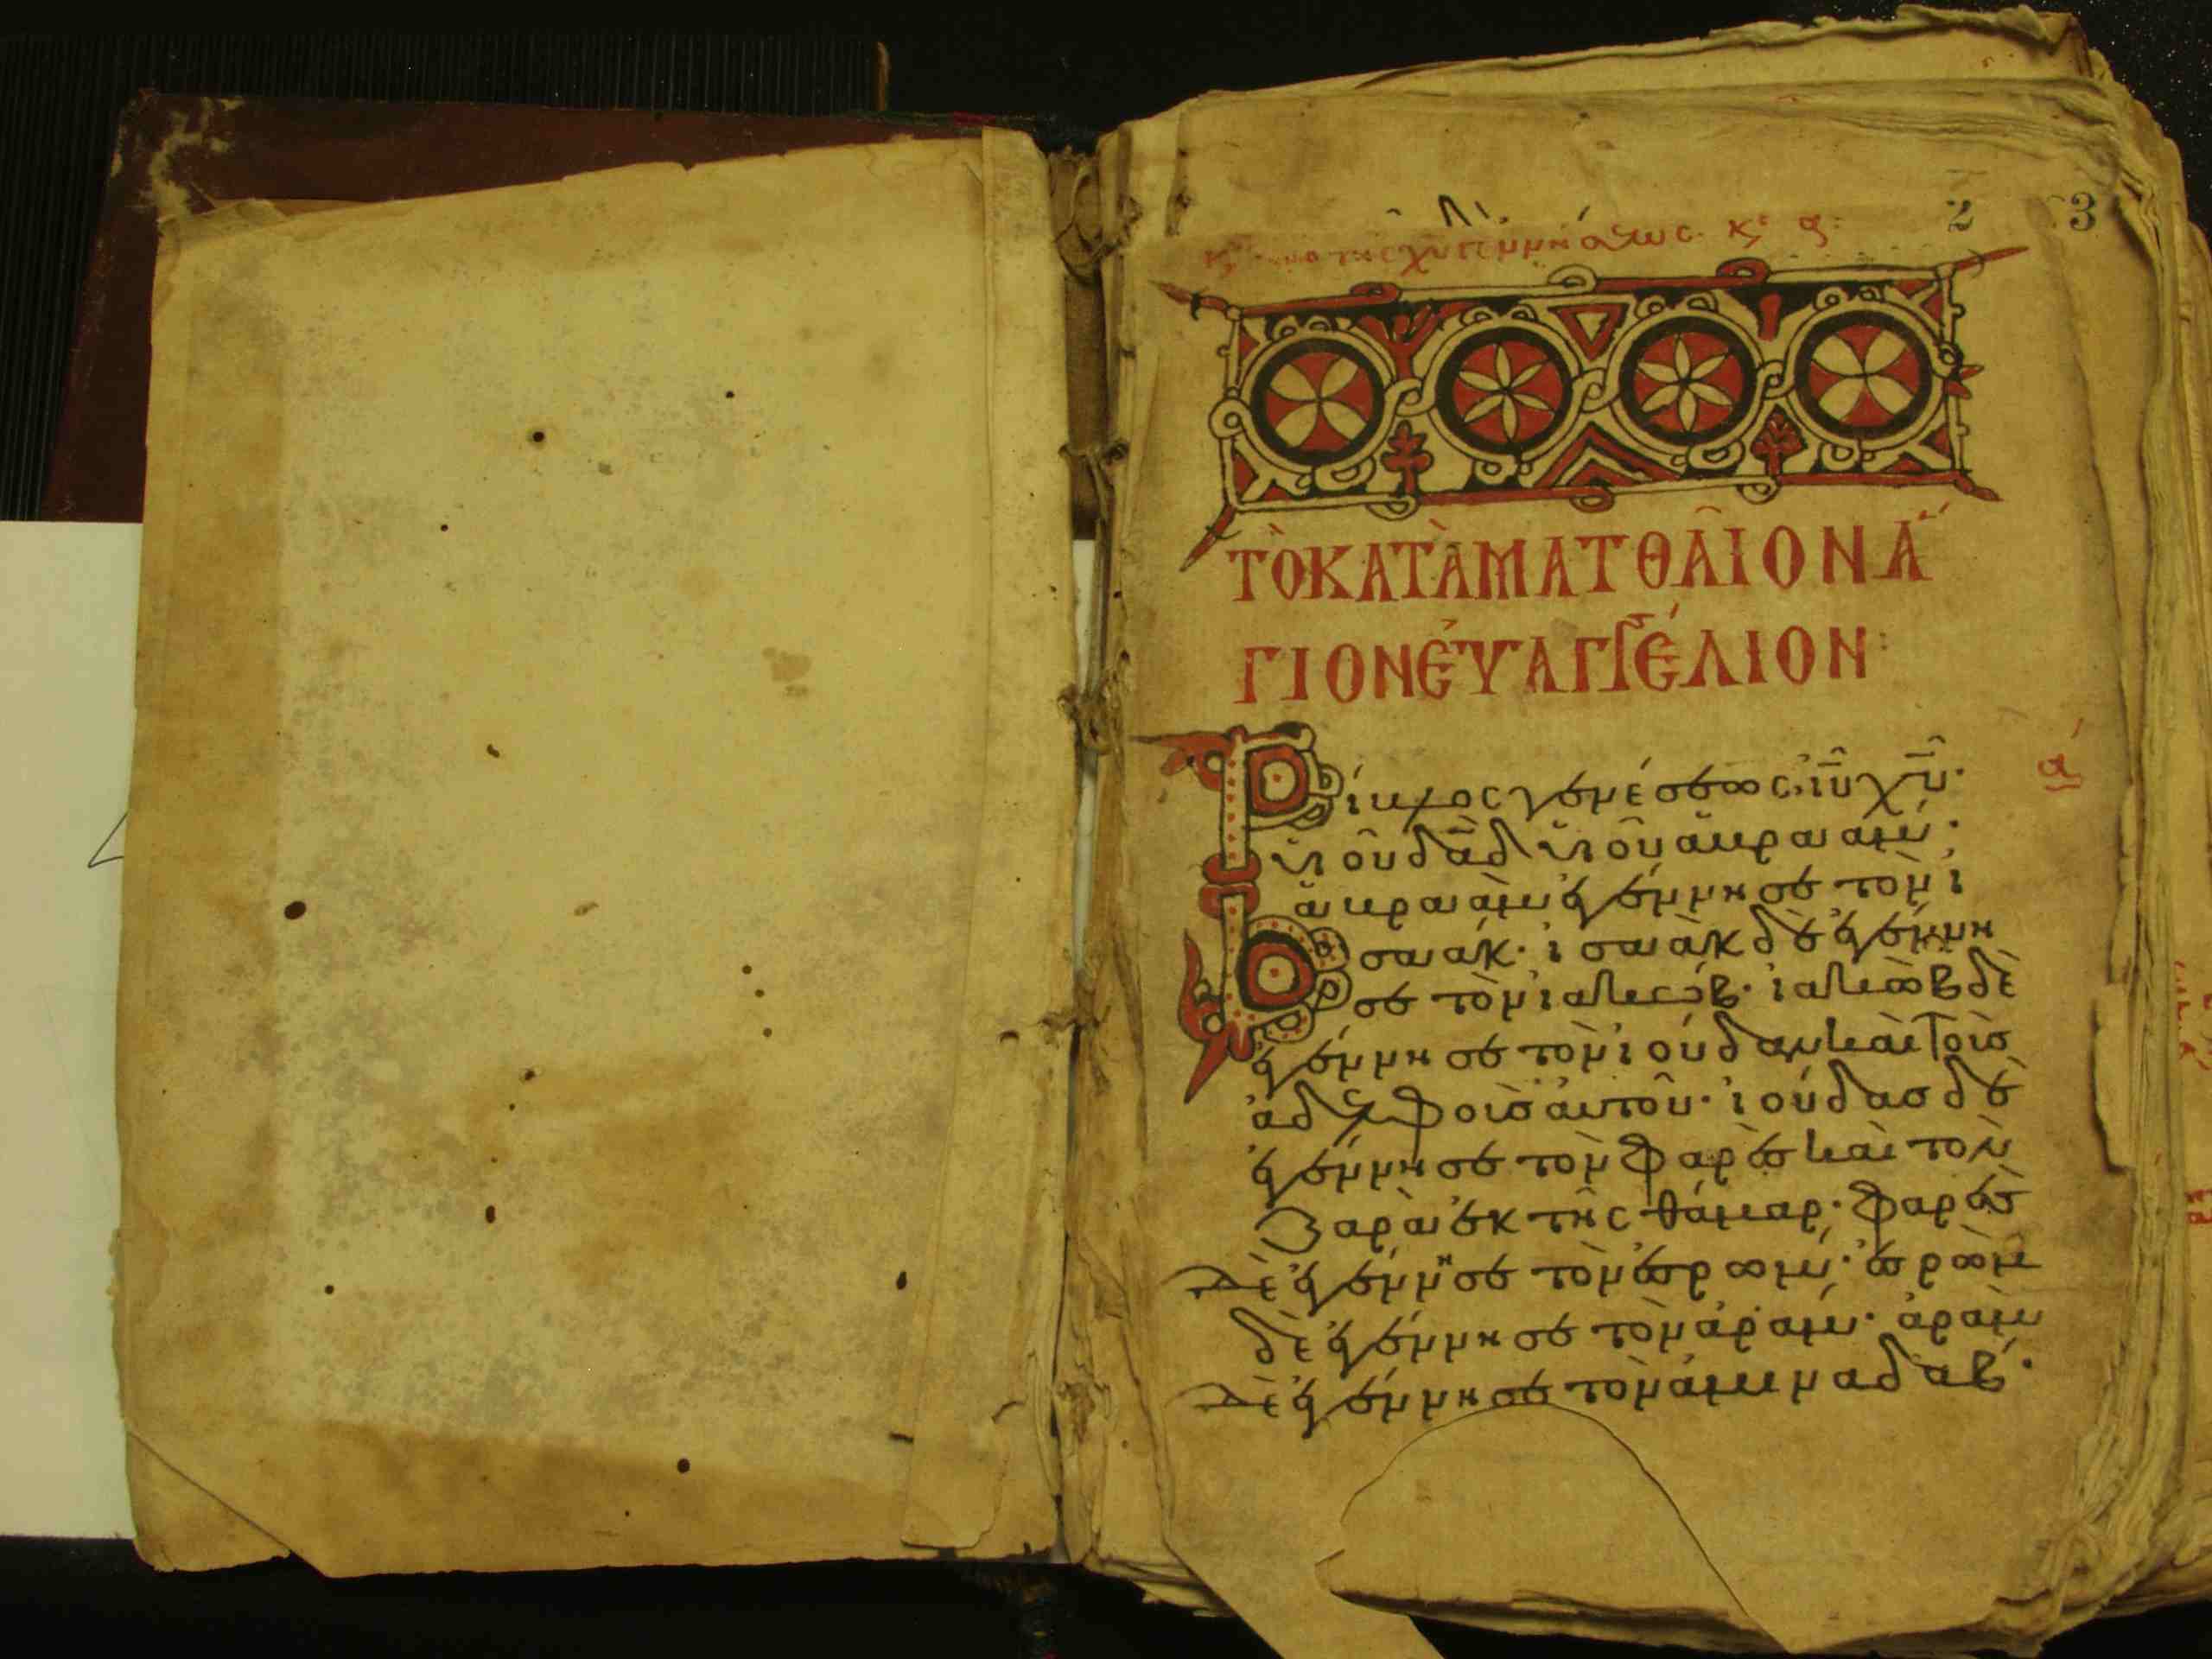 2 3
πρὸ τῆς χυ γεννήσεως. κυ α:
ΤὸΚΑΤᾺΜΑΤΘΑῖΟΝἉ
ΓΙΟΝΕὐΑΓΓΈΛΙΟΝ:
α
Βίβλος γενέσεως, ιῦ χῦ·
ὑιοῦ δᾱδ ὑιοῦ ἀβρααμ·
ἀβραὰμ ἐγέννησε τὸν ἰ
σαάκ· ἰσαὰκ δὲ ἐγέννη
σε τὸν ἰακώβ· ἰακὼβ δὲ
ἐγέννησε τὸν ἰούδαν καὶ τοὺσ
ἀδελφοὺσ ἀυτοῦ· ἰούδασ δὲ
ἐγέννησε τὸν φαρὲσ καὶ τὸν
ζαρὰ ἐκ τῆς θάμαρ· φαρὲσ
δὲ ἐγέννησε τὸν ἐσρώμ· ἐσρὼμ
δὲ ἐγέννησε τὸν ἀράμ· ἀρὰμ
δὲ ἐγέννησε τὸν ἀμιναδάβ·